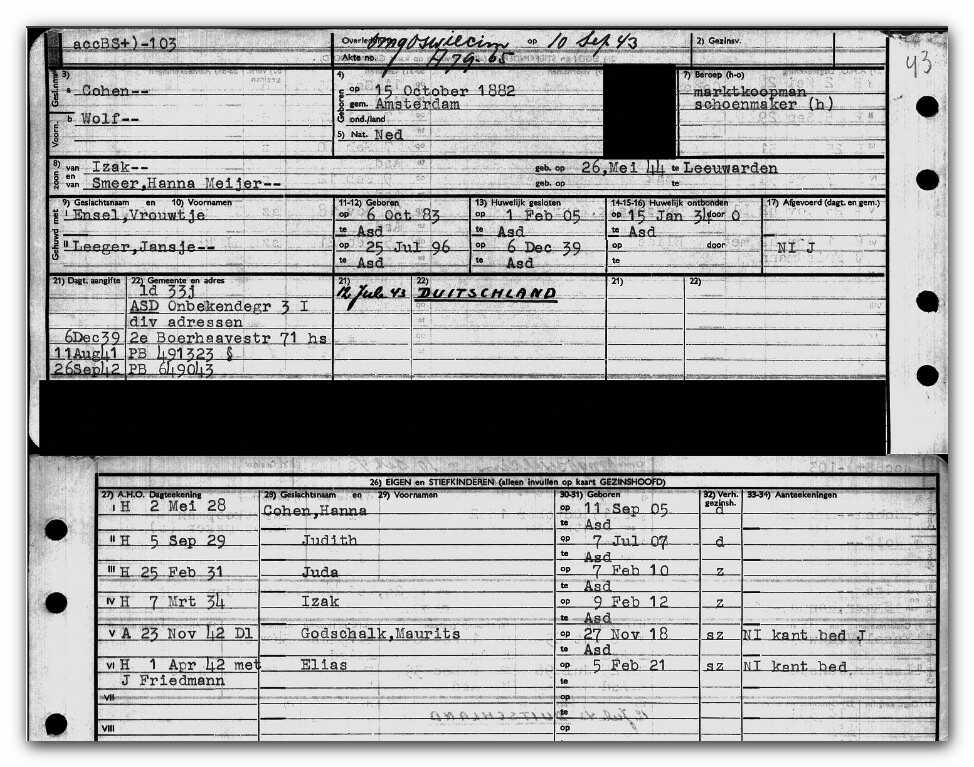 accBS+)-103 Overleden omgoswiecim op 10 Sep 43 2) Gezinsv.
Akte no. A 79-65
43
3) 4) 7) Beroep (h-o)
Gesl.nm. a Cohen-- Geboren op 15 October 1882 marktkoopman
gem. Amsterdam schoenmaker (h)
Voorn. b Wolf-- ond./land
5) Nat. Ned
8) zoon van Izak-- geb. op 26,Mei 44 te Leeuwarden
en van Smeer,Hanna Meijer-- geb. op te
9) Geslachtsnaam en 10) Voornamen 11-12) Geboren 13) Huwelijk gesloten 14-15-16) Huwelijk ontbonden 17) Afgevoerd (dagt. en gem.)
Gehuwd met I Ensel,Vrouwtje op 6 Oct 83 op 1 Feb 05 op 15 Jan 34 door O
te Asd te Asd te Asd
II Leeger,Jansje-- op 25 Jul 96 op 6 Dec 39 op door NI J
te Asd te Asd te
21) Dagt. aangifte 22) Gemeente en adres 21) 22) 21) 22)
ld 33j 12 Jul. 43 DUITSCHLAND
ASD Onbekendegr 3 I
div adressen
6Dec39 2e Boerhaavestr 71 hs
11Aug41 PB 491323 §
26Sep42 PB 649043
26) EIGEN en STIEFKINDEREN (alleen invullen op kaart GEZINSHOOFD)
27) A.H.O. Dagteekening 28) Geslachtsnaam en 29) Voornamen 30-31) Geboren 32) Verh. gezinsh. 33-34) Aanteekeningen
I H 2 Mei 28 Cohen,Hanna op 11 Sep 05 d
te Asd
II H 5 Sep 29 Judith op 7 Jul 07 d
te Asd
III H 25 Feb 31 Juda op 7 Feb 10 z
te Asd
IV H 7 Mrt 34 Izak op 9 Feb 12 z
te Asd
V A 23 Nov 42 Dl Godschalk,Maurits op 27 Nov 18 sz NI kant bed J
te Asd
VI H 1 Apr 42 met Elias op 5 Feb 21 sz NI kant bed
J Friedmann te
VII op
te
VIII op